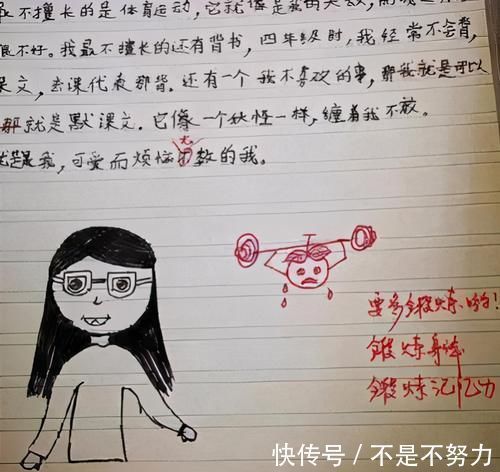 不擅长的是体育运动,它就像是我的天敌,
很不好。我最不擅长的还有背书,四年级时,我经常不会背
课文,去课代表那背。还有一个我不喜欢的事,那我就是可以
那就是默课文。它像一个妖怪一样,缠着我不放。
就是我,可爱而烦恼无数的我。
要多锻炼哟!
锻炼身体
锻炼记忆力
快传号 / 不是不努力